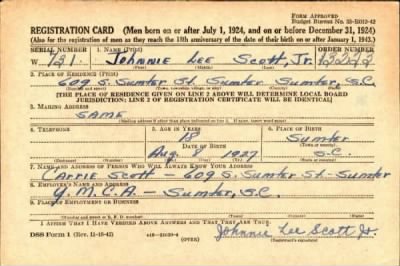 Form Approved
Budget Bureau No. 33-R012-42
REGISTRATION CARD (Men born on or after July 1, 1924, and on or before December 31, 1924)
(Also for the registration of men as they reach the 18th anniversary of the date of their birth on or after January 1, 1943.)
SERIAL NUMBER 1. NAME (Print) ORDER NUMBER
W 731 Johnnie Lee Scott, Jr.
2. PLACE OF RESIDENCE (Print)
609 S. Sumter St. Sumter Sumter, S.C.
[THE PLACE OF RESIDENCE GIVEN ON LINE 2 ABOVE WILL DETERMINE LOCAL BOARD
JURISDICTION; LINE 2 OF REGISTRATION CERTIFICATE WILL BE IDENTICAL]
3. MAILING ADDRESS
SAME
[Mailing address if other than place indicated on line 2. If same, insert word same]
4. TELEPHONE 5. AGE IN YEARS 6. PLACE OF BIRTH
18 Sumter
DATE OF BIRTH (Town or county)
Aug 8 1927 S.C.
7. NAME AND ADDRESS OF PERSON WHO WILL ALWAYS KNOW YOUR ADDRESS
Carrie Scott - 609 S. Sumter St. - Sumter
8. EMPLOYER'S NAME AND ADDRESS
Y.M.C.A. - Sumter, S.C.
9. PLACE OF EMPLOYMENT OR BUSINESS
I AFFIRM THAT I HAVE VERIFIED ABOVE ANSWERS AND THAT THEY ARE TRUE.
DSS Form 1 (Rev. 11-16-42) (OVER) Johnnie Lee Scott Jr.
(Registrant's signature)